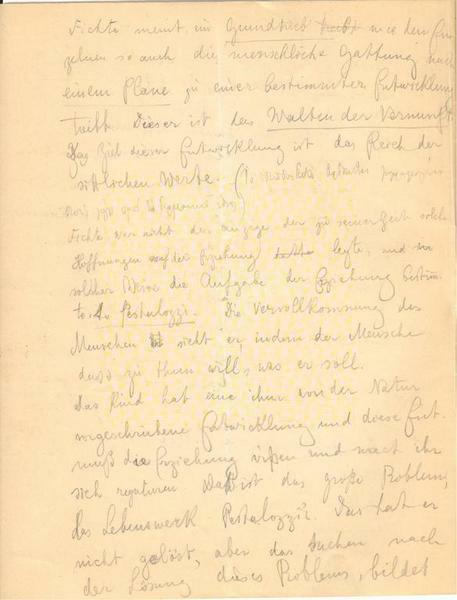 Fichte meint, ein Grundtrieb treibt wie den Ein
zelnen so auch die menschliche Gattung nach
einem Plane zu einer bestimmten Entwicklung
tritt. Dieser ist das Walten der Vernunft
Das Ziel dieser Entwicklung ist das Reich der
sittlichen Werte.
Fichte war nicht der einzige der zu seiner Zeit solche
Hoffnungen auf die Erziehung hatte legte, und in
solcher Weise die Aufgabe der Erziehung bestimm
te. Pestalozzi. Die Vervollkommnung des
Menschen sieht er, indem der Mensche
dass zu thun will, was er soll.
Das Kind hat eine ihm von der Natur
vorgeschriebene Entwicklung und diese Ent.
muß die Erziehung wißen und nach ihr
sich regulieren. Daß ist das große Problem,
das Lebenswerk Pestalozzi's. Das hat er
nicht gelöst, aber das suchen nach
der Lösung dieses Problems, bildet